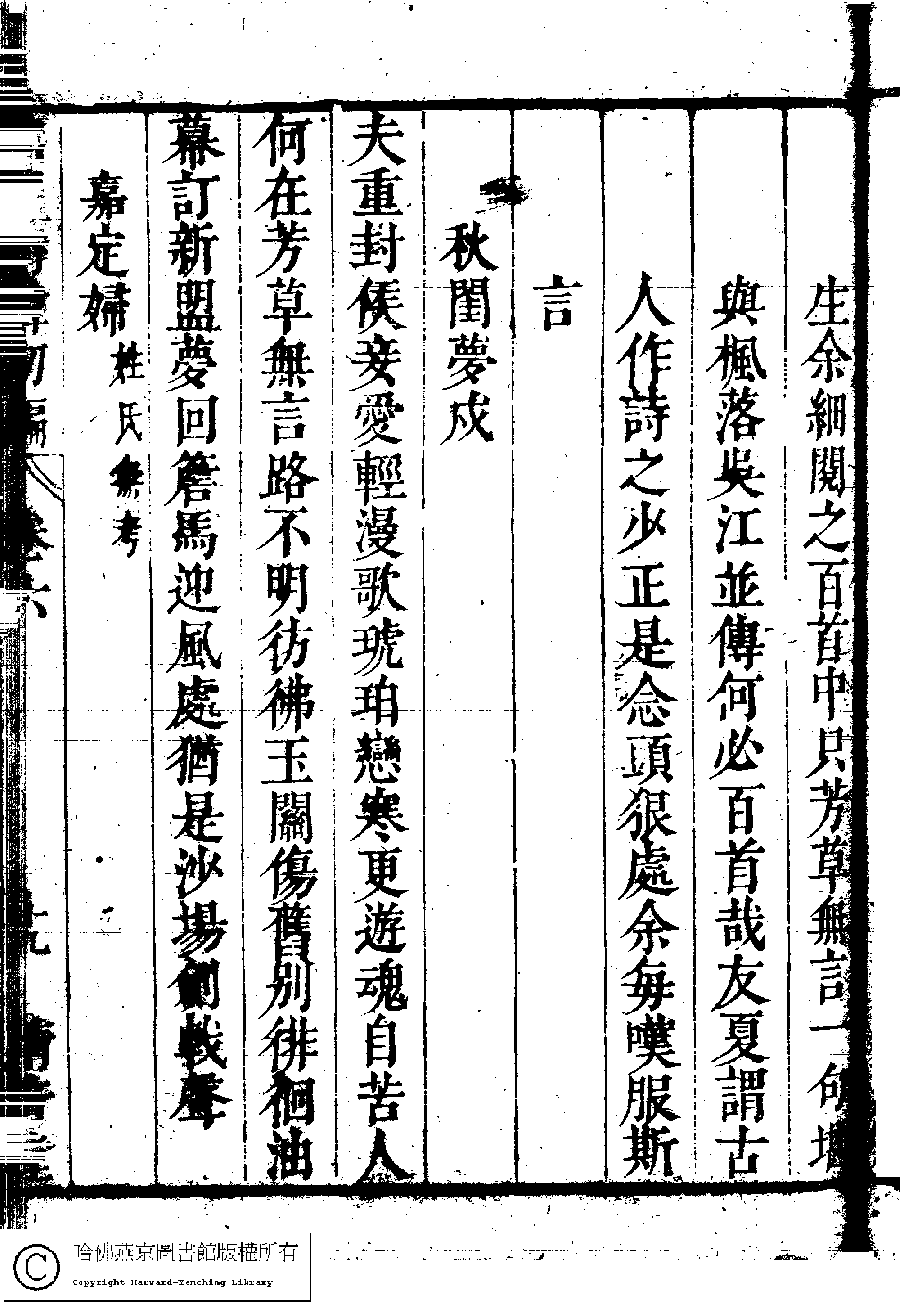 生余細閱之百首中只芳草無言一句堪
與楓落吳江並傳何必百首哉友夏謂古
人作詩之少正是念頭狠處余每嘆服斯
言
秋閨夢戍
夫重封侯妾愛輕漫歌琥珀戀寒更遊魂自苦人
何在芳草無言路不明彷彿玉關傷舊別徘徊油
幕訂新盟夢回簷馬迎風處猶是沙場劍戟聲
嘉定婦姓氏無考
初編 卷六
哈佛燕京圖書館版權所有
Copyright Harvard-Yenching Library